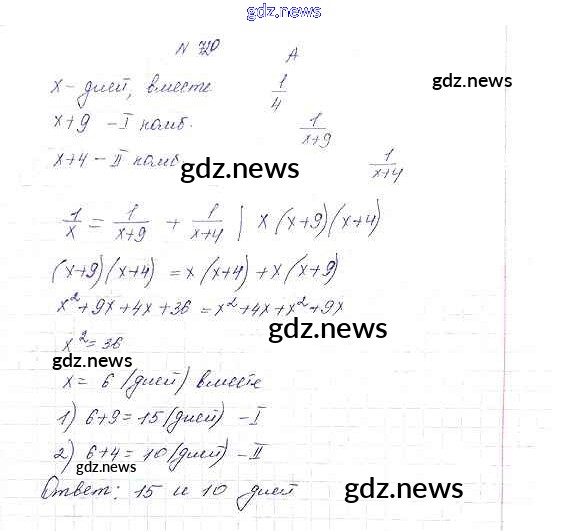 gdz.news
N 720
А
x - дней, вместе 1/4 gdz.news
x+9 - I комб. 1/(x+9)
x+4 - II комб. 1/(x+4)
gdz.news
1/x = 1/(x+9) + 1/(x+4) | x(x+9)(x+4)
(x+9)(x+4) = x(x+4) + x(x+9)
x²+9x+4x+36 = x²+4x+x²+9x
gdz.news
x²=36
gdz.news
x = 6 (дней) вместе
1) 6+9=15 (дней) - I
2) 6+4=10 (дней) - II
gdz.news
Ответ: 15 и 10 дней gdz.news